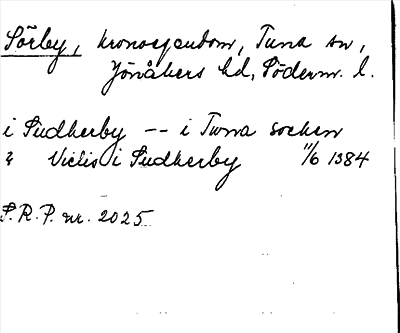 Sörby, kronoegendom, Tuna sn,
Jönåkers hd, Söderm. l.
i Sudherby -- i Tuna socken
& Viclis i Sudherby 11/6 1384
S.R.P. nr. 2025